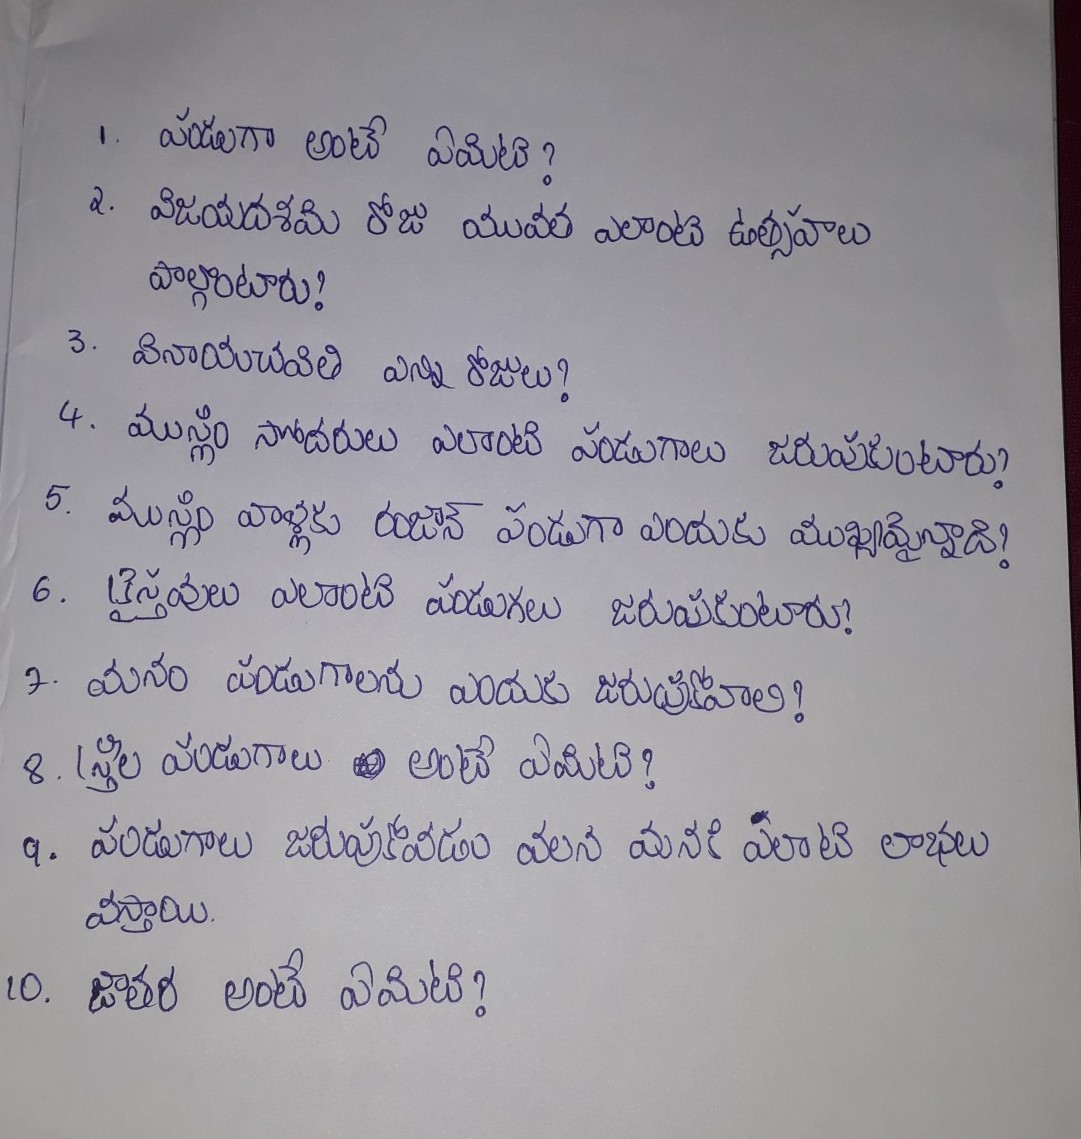 1. పండుగా అంటే ఏమిటి?
2. విజయదశమి రోజు యువత ఎలాంటి ఉత్సహాలు
పాల్గొంటారు?
3. వినాయచవితి ఎన్ని రోజులు?
4. ముస్లిం సోదరులు ఎలాంటి పండుగాలు జరుపుకుంటారు?
5. ముస్లిం వాళ్లకు రంజాన్ పండుగా ఎందుకు ముఖ్యమైన్నాది?
6. క్రైస్తవులు ఎలాంటి పండుగలు జరుపుకుంటూరు?
7. మనం పండుగాలను ఎందుకు జరుపుకోవాలి?
8. స్త్రీల పండుగాలు అంటే ఏమిటి?
9. పండుగాలు జరుపుకోవడం వలన మనకి ఎలాటి లాభలు
వస్తాయి.
10. జాతర అంటే ఏమిటి?